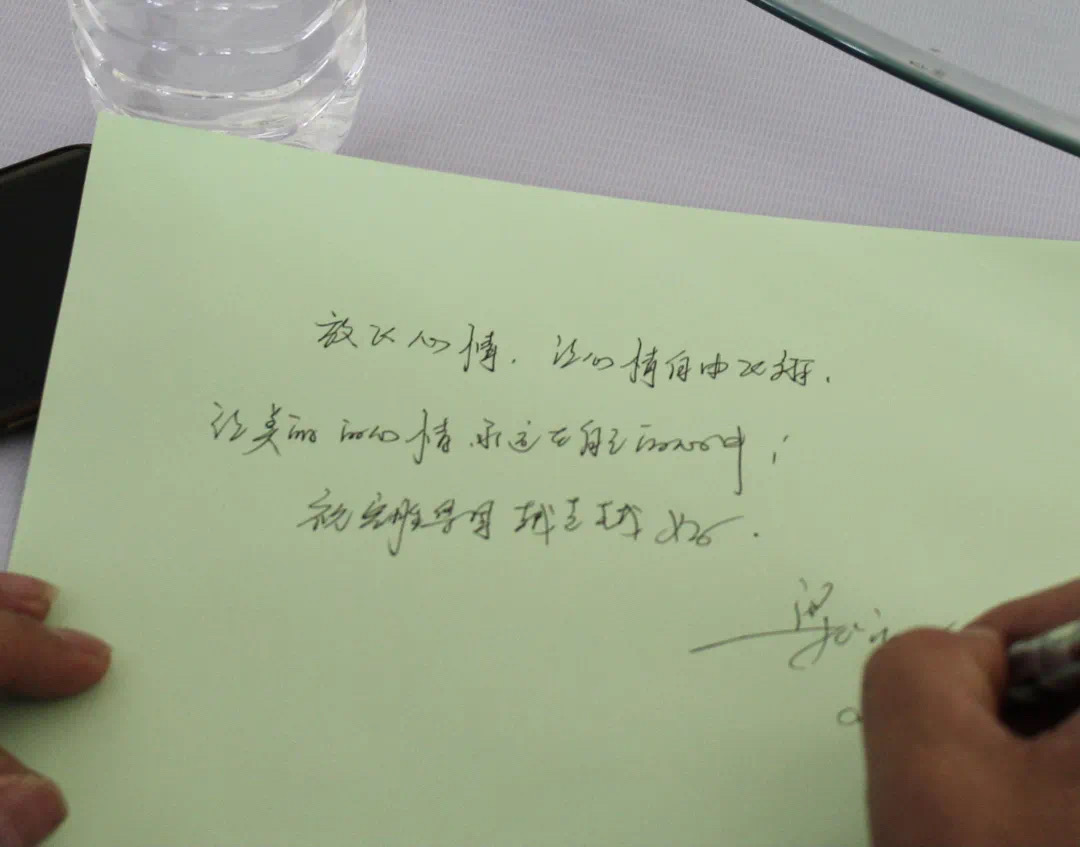 放飞心情，让心情自由飞翔，
让美丽的心情永远在自己的心中；
祝 学习越走越好.
梁